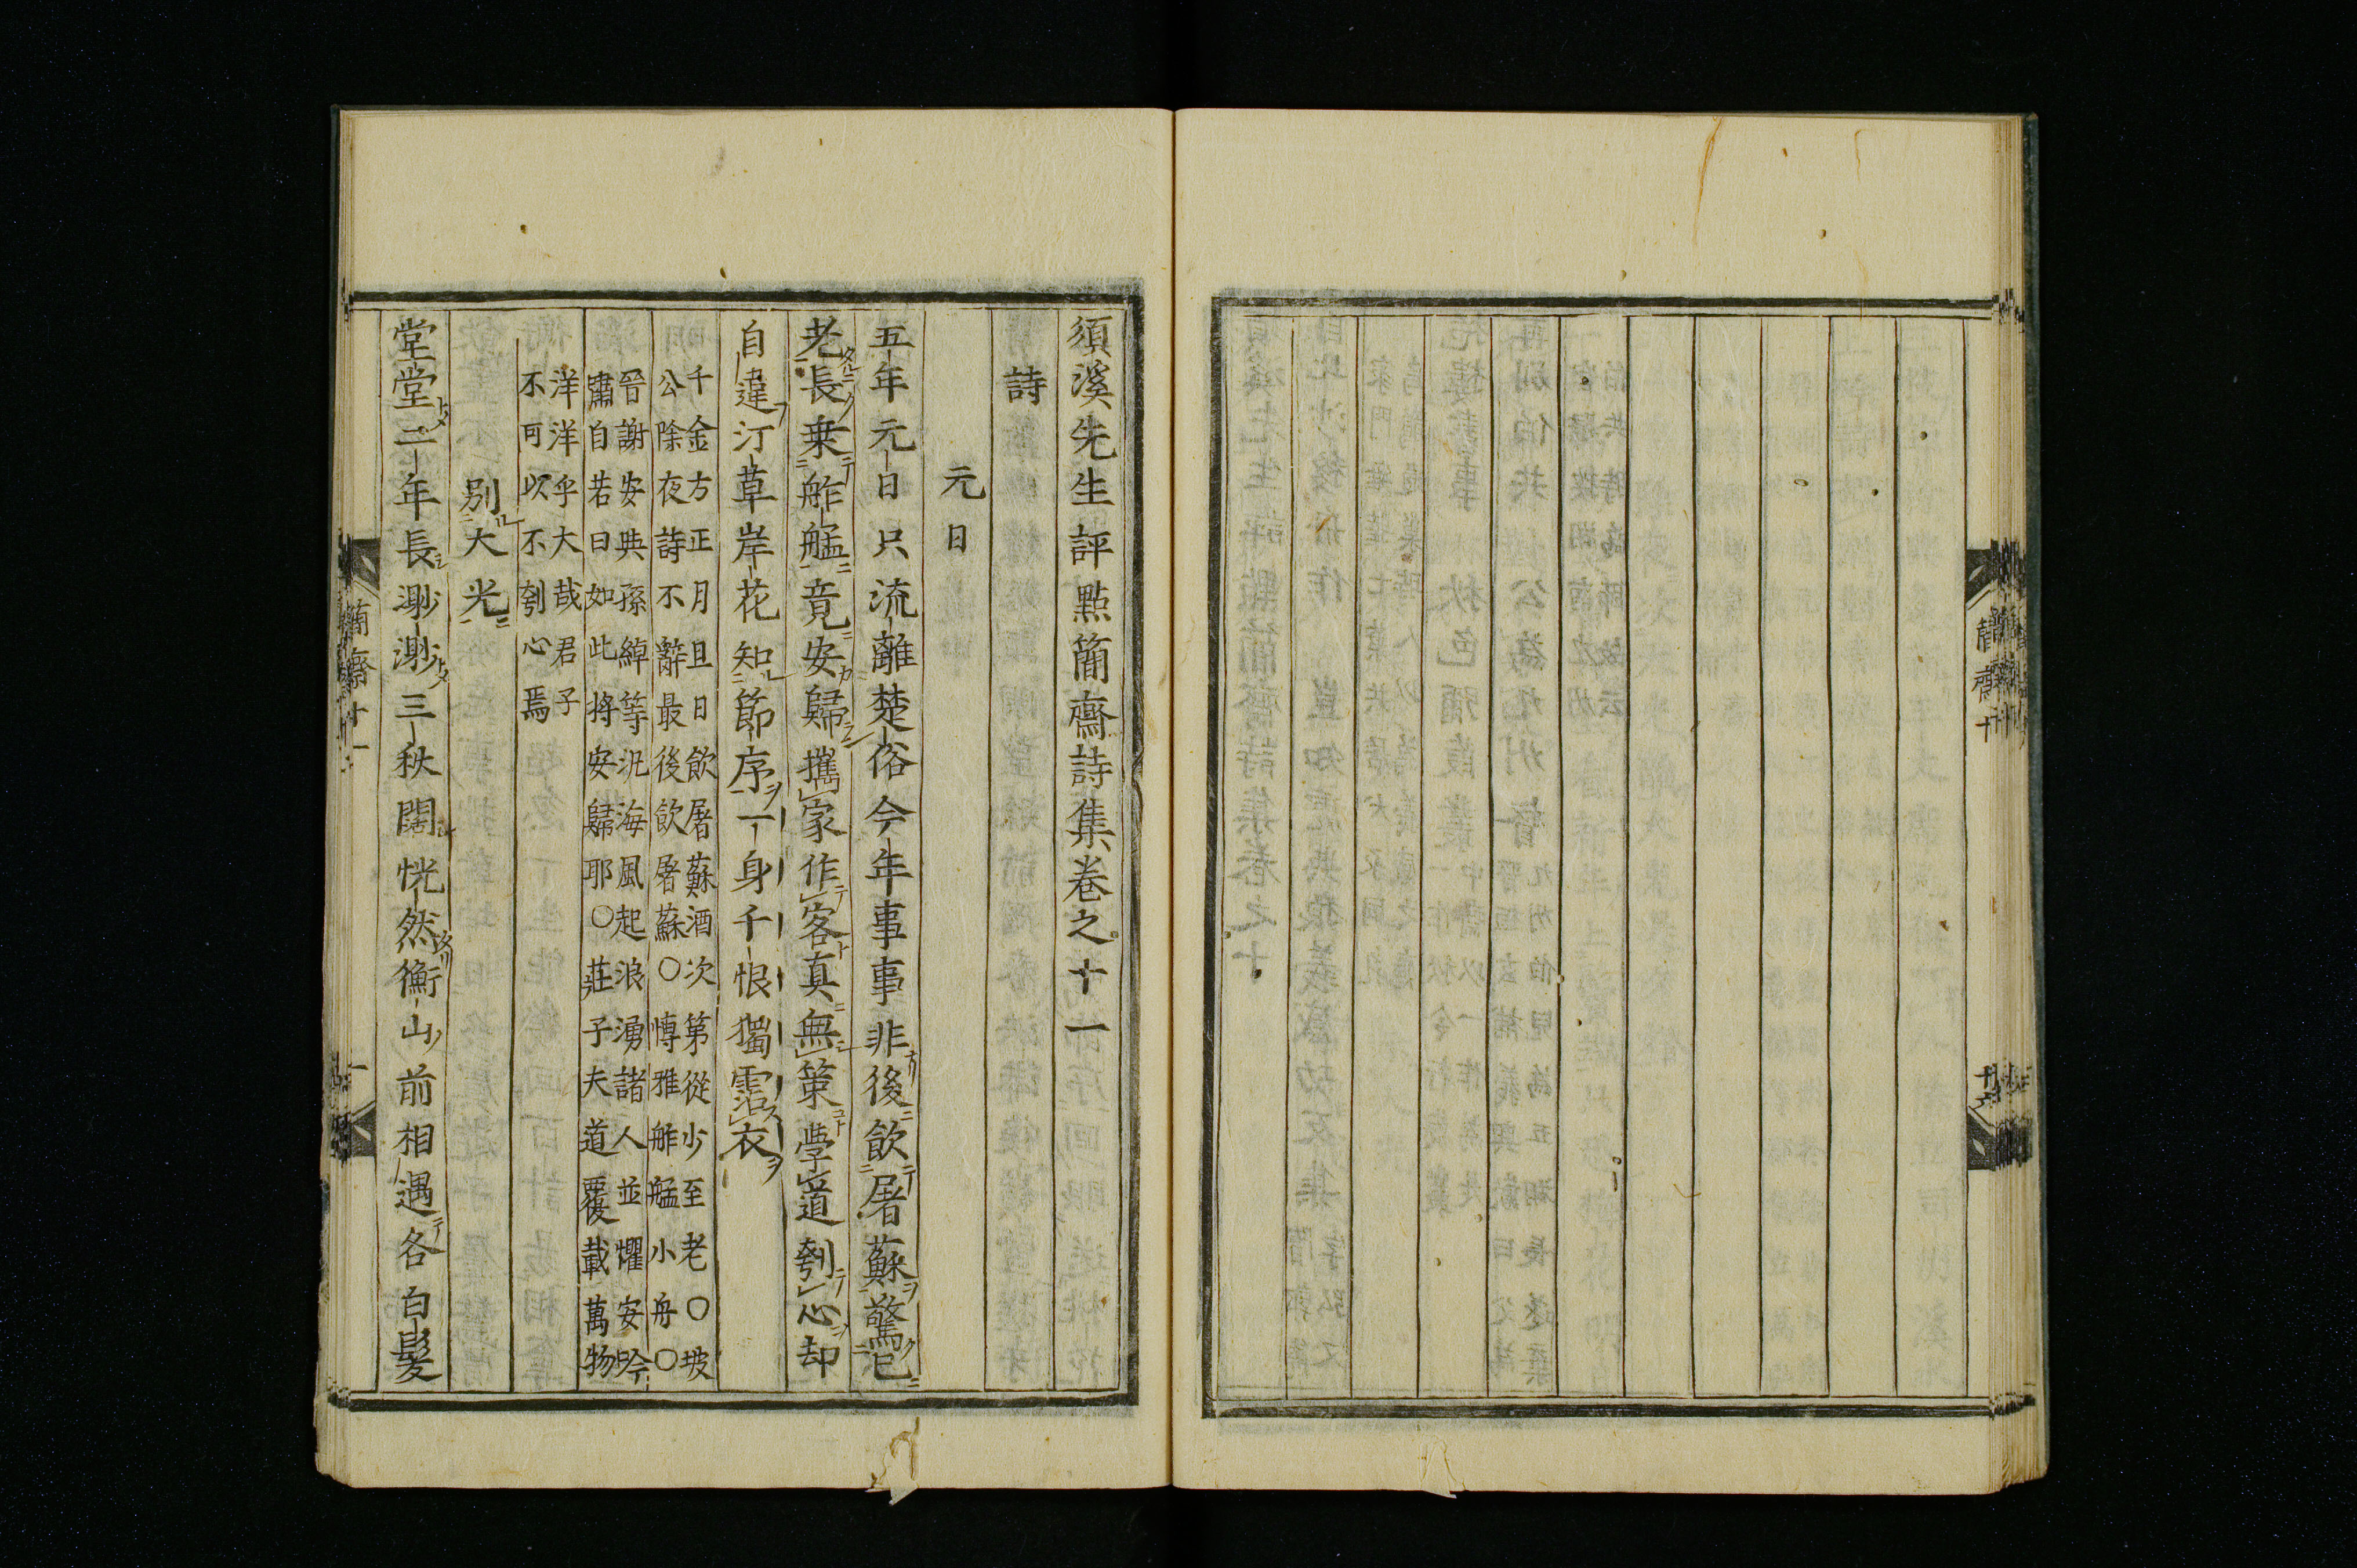 須溪先生評點簡齋詩集卷之十一
詩
元日
五年元日只流離楚俗今年事事非後飲屠蘇驚已
老長乗舴艋竟安歸攜家作客真無策學道刳心却
自違汀草岸花知節序一身千恨獨霑衣
千金方正月旦日飲屠蘇酒次第從少至老○坡
公除夜詩不辭最後飲屠蘇○博雅舴艋小舟○
晉謝安與孫綽等汎海風起浪湧諸人並懼安吟
嘯自若曰如此將安歸耶○莊子夫道覆載萬物
洋洋乎大哉君子
不可以不刳心焉
別大光
堂堂二年長渺渺三秋闊恍然衡山前相遇各白髪
簡齋十一
一
簡齋十